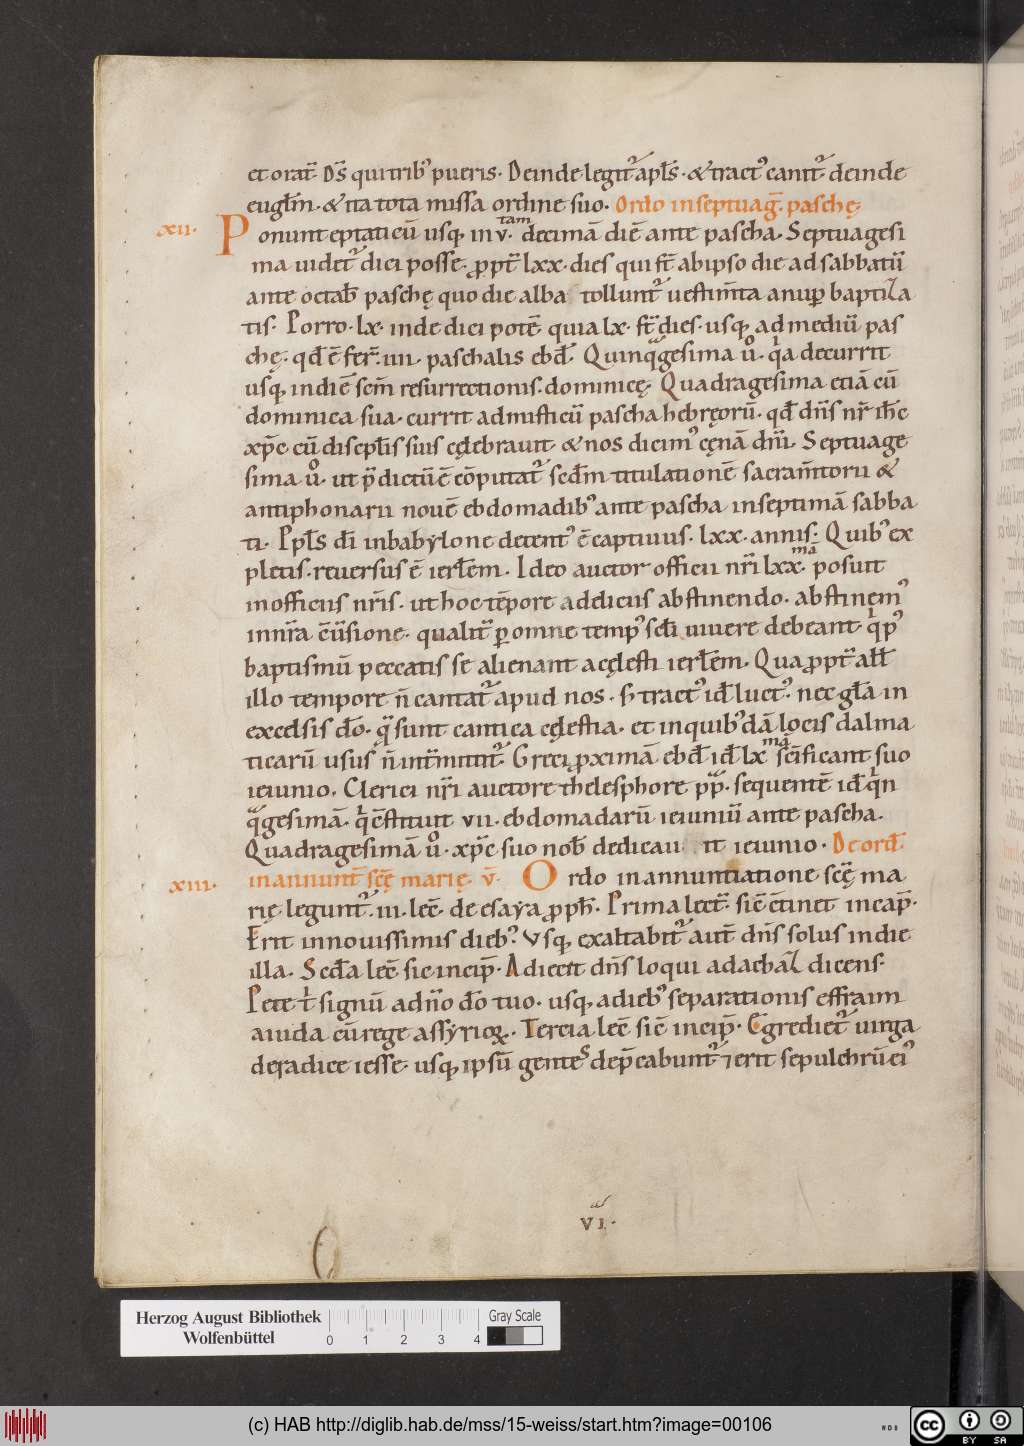 et orat̄ · D̄s qui trib᾽ pueris · Deinde legit᾽ apl̄s · & tract᾽ canit᾽ deinde
eugl̄m · & ita tota missa ordine suo · Ordo in septuag̅ · paschę ·
xii · Ponunt eptaticū usq; in v · tam decimā diē ante pascha · Septuagesi
ma uidet᾽ dici posse · ꝓpt̄ lxx · dies qui fīt ab ipso die ad sabbatū
ante octab̄ paschę quo die alba tollunt᾽ uestim̄ta a nup baptiza
tis · Porro · lx · inde dici potē quia lx · fīt dies · usq; ad mediū pas
chę · qd̄ ē fer̄ · iiii · paschalis ebd̄ · Quinqᵃgesima ů · qa decurrit
usq; in diē sc̄m resurrectionis · dominicę · Quadragesima etiā cū
dominica sua · currit ad misticū pascha hebręorū · qd̄ dn̄s nr̄ ih̄c
xp̄c cū discipl̄is suis cęlebrauit · & nos dicim᾽ cęnā dn̄i · Septuage
sima ů · ut p̄dictū ē cōputat᾽ secd̄m titulationē sacram̄torii &
antiphonarii nouē ebdomadib᾽ ante pascha in septimā sabba
ti · Ppl̄s dī in babẏlone detent᾽ ē captiuus · lxx · annis · Quib᾽ ex
pletis · reuersus ē ierl̄em · Ideo auctor officii nr̄i lxx · mā posuit
in officiis nr̄is · ut hoc tēpore addicus abstinendo · abstinem᾽
in nr̄a cū̄sione · qualit̄ p omne temp᾽ scl̄i uiuere debeant · qi p᾽
baptismū peccatis se alienant a cęlesti ierl̄em · Qua ꝓpt̄ all̄
illo tempore n̄ cantat᾽ apud nos · s; tract᾽ id̄ luct᾽ · nec gl̄a in
excelsis dō · q̄ sunt cantica cęlestia · et in quib᾽dā locis dalma
ticarū usus n̄ int̄mittit᾽ · Greci ꝓximā ebd̄ id̄ lx mā sc̄ificant suo
ieiunio · Clerici nr̄i auctore thelesphore pᵃp · sequentē id̄ qin
qᵃgesimā · qi ēstituit vii · ebdomadarū ieiuniū ante pascha ·
Quadragesimā ů · xp̄c suo nob̄ dedicau it ieiunio · De ord̄
xiii · in annunt̄ sc̄ę marię · v̄ · Ordo in annuntiatione sc̄ę ma
rię · legunt᾽ · iii · lec̄ · de esaẏa ꝓph̄ · Prima lect̄ · sic̄ ētinet in cap̄ ·
Erit in nouissimis dieb᾽ · Vsq; exaltabit᾽ aut̄ dn̄s solus in die
illa · Secd̄a lec̄ sic incip̄ · Adiecit dn̄s loqui ad achaz dicens ·
Pete ti signū a dn̄o dō tuo · usq; a dieb᾽ separationis effraim
a iuda cū rege assẏrioꝝ · Tercia lec̄ sic̄ incip̄ · Egrediet᾽ uirga
de radice iesse · usq; ipsū gentes dep̄cabunt᾽ ⁊ erit sepulchrū ei᾽
VI ·
Herzog August Bibliothek
Wolfenbüttel
0 1 2 3 4
Gray Scale
(c) HAB http://diglib.hab.de/mss/15-weiss/start.htm?image=00106
WDB
cc BY SA